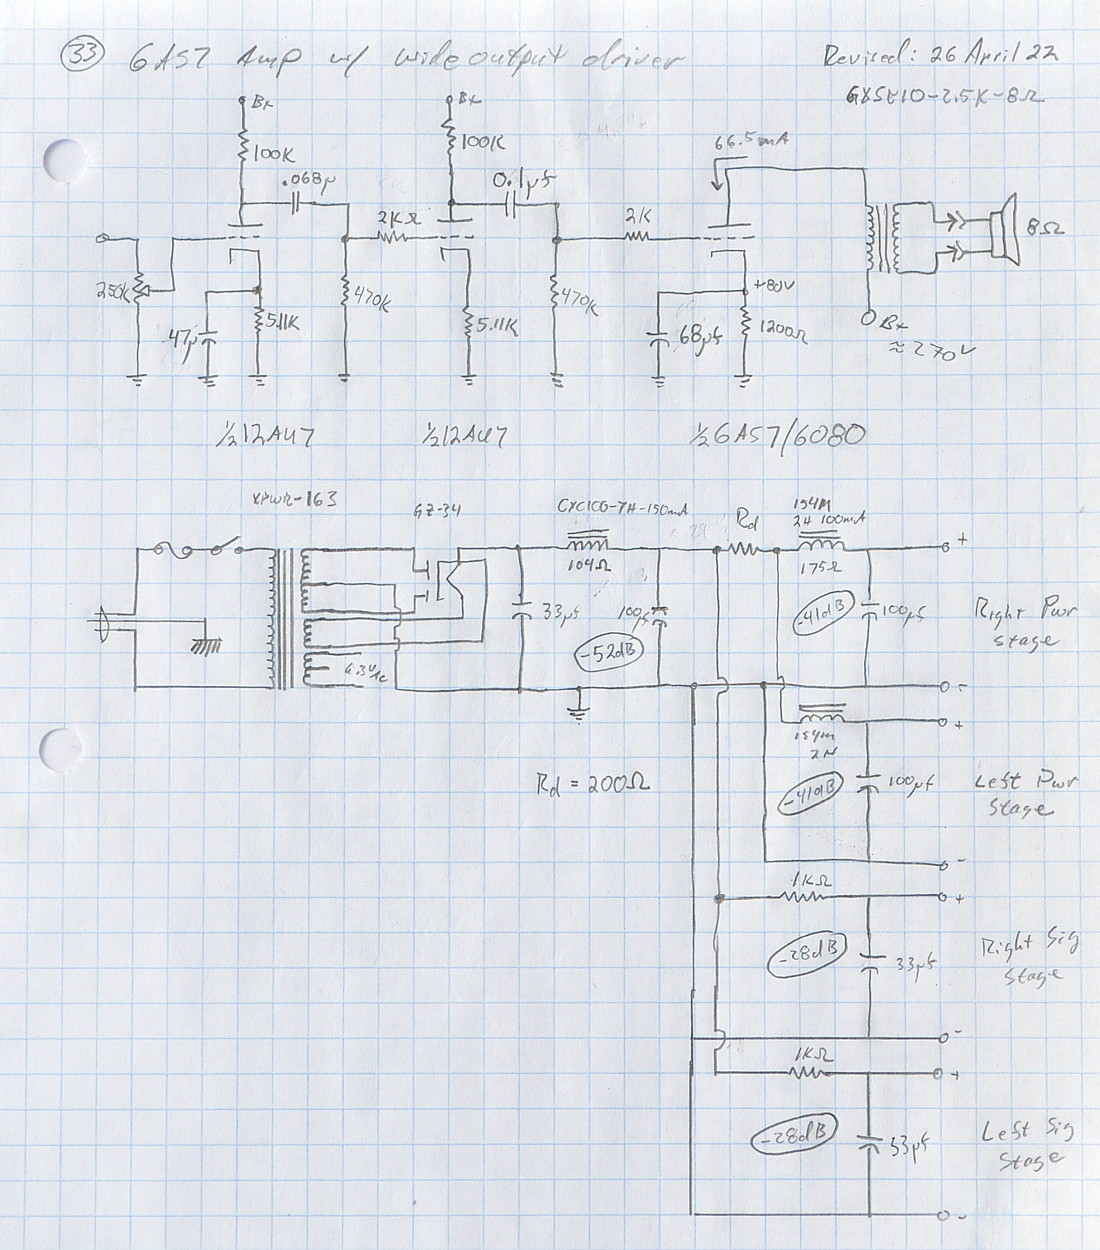 33 6AS7 Amp w/ wide output driver
Revised: 26 April 22
GXSE10-2.5K-8Ω
B+
B+
100K
100K
66.5mA
.068μ
0.1μf
2KΩ
2K
8Ω
250K
+80V
470K
470K
47μ
5.11K
5.11K
68μf
1200Ω
B+
≈270V
1/2 12AU7
1/2 12AU7
1/2 6AS7/6080
XPWR-163
GZ-34
CXC10G-7H-150mA
Rd
154M
2H 100mA
104Ω
175Ω
33μf
100μf
-41dB
100μf
Right Pwr
Stage
-52dB
6.3Vac
+
-
+
154m
2H
Rd = 200Ω
-41dB
100μf
Left Pwr
Stage
-
1KΩ
+
-28dB
33μf
Right Sig
Stage
-
1KΩ
+
-28dB
33μf
Left Sig
Stage
-